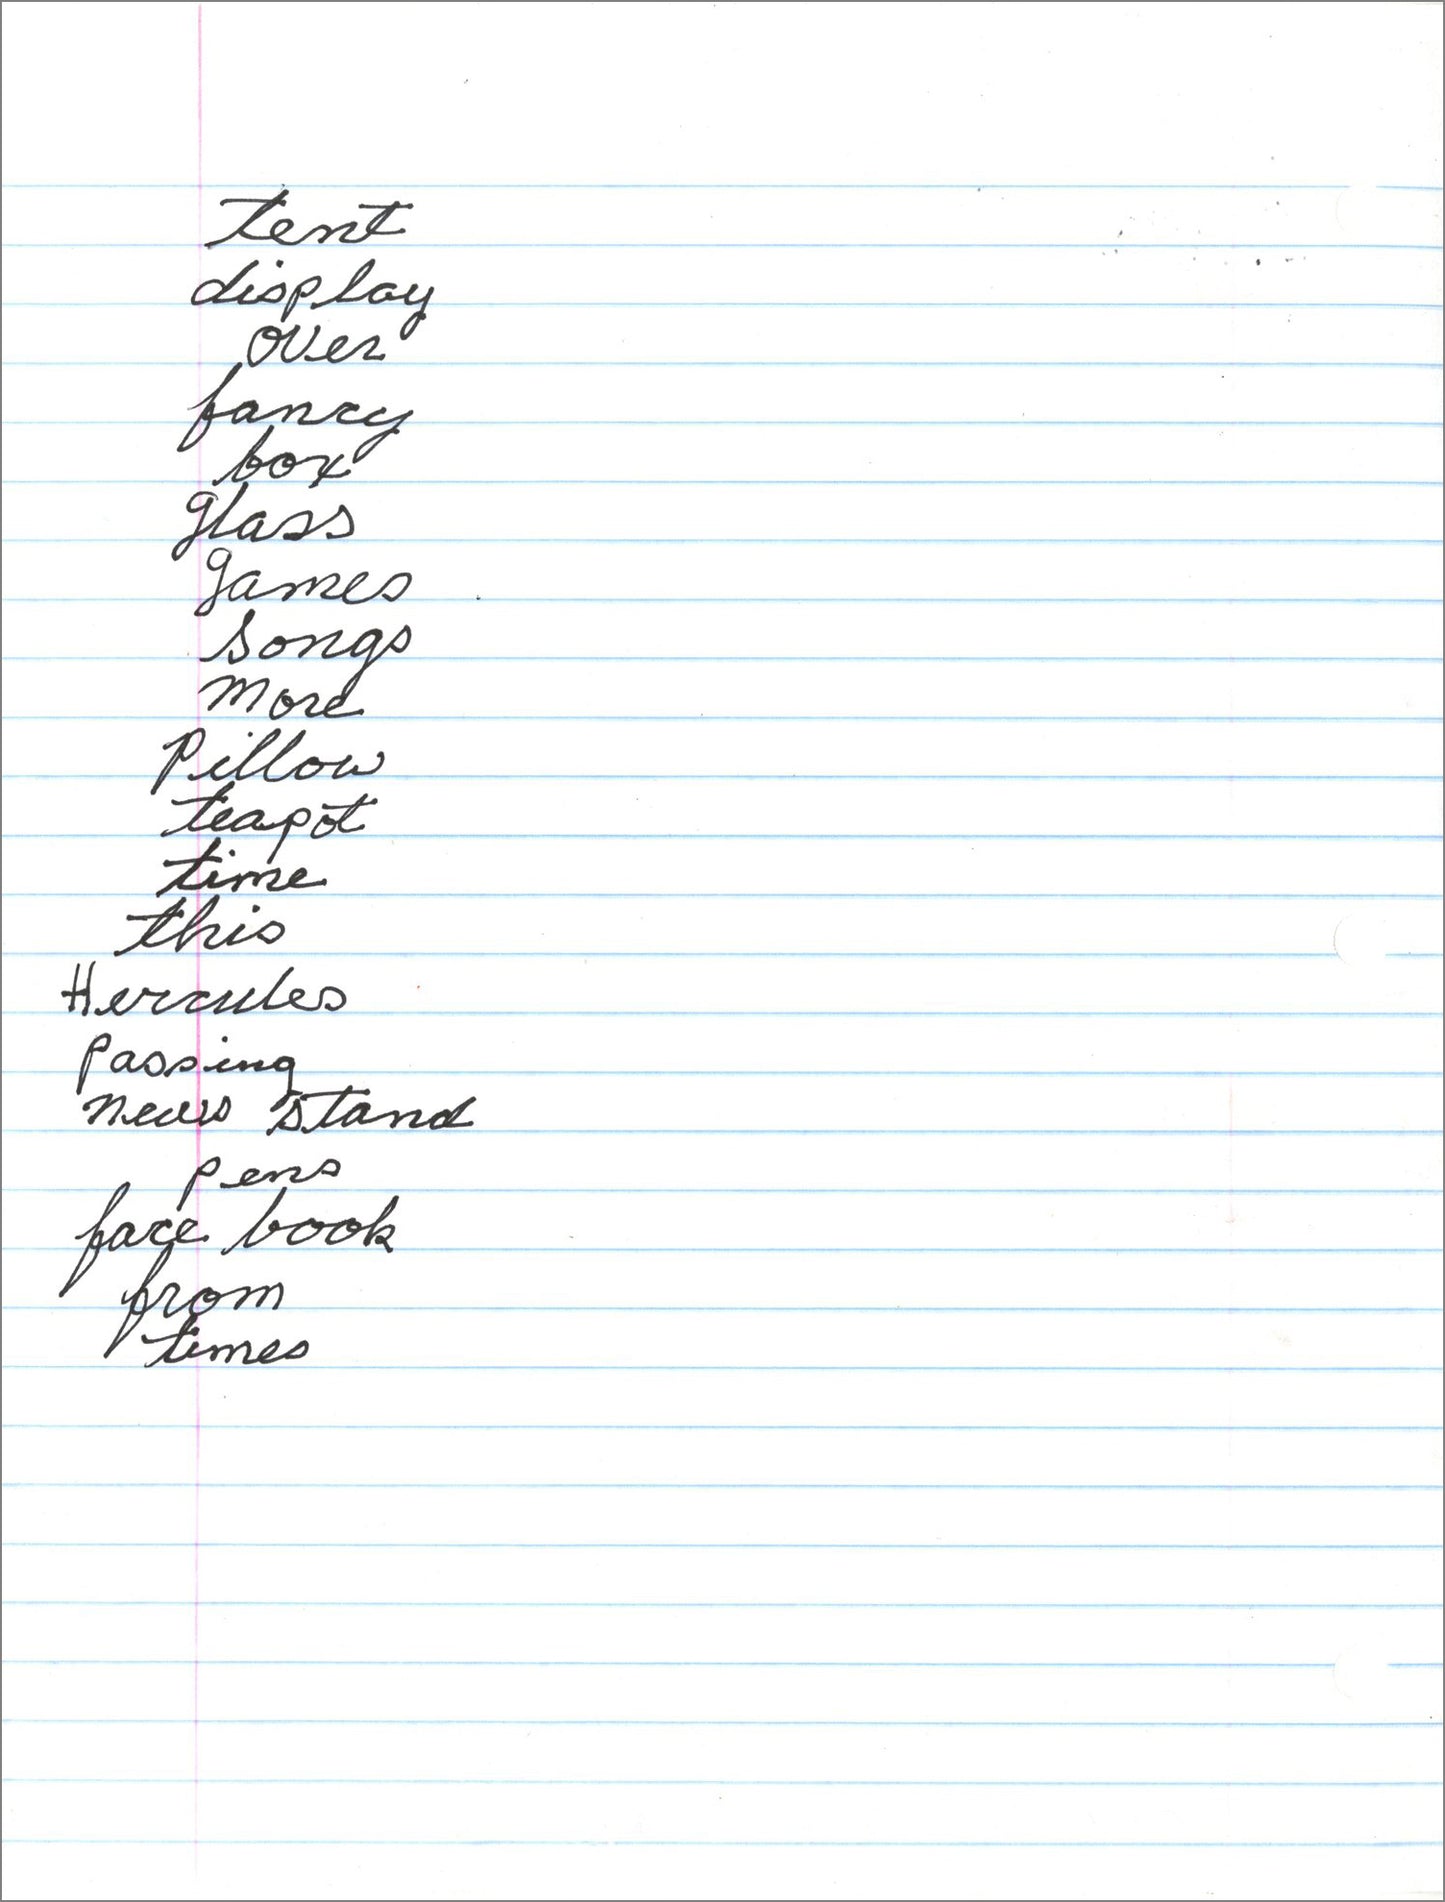 tent
display
over
fancy
box
glass
games
songs
more
Pillow
teapot
time
this
Hercules
passing
news stand
pens
face book
from
times